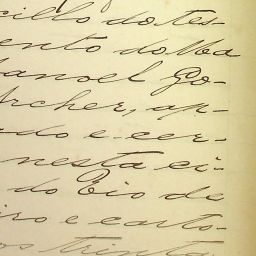 cillo do tes-
ento do Ma
anoel Go-
Archer, ap-
ado e cer-
nesta ci-
do Rio de
iro e carto-
os trinta